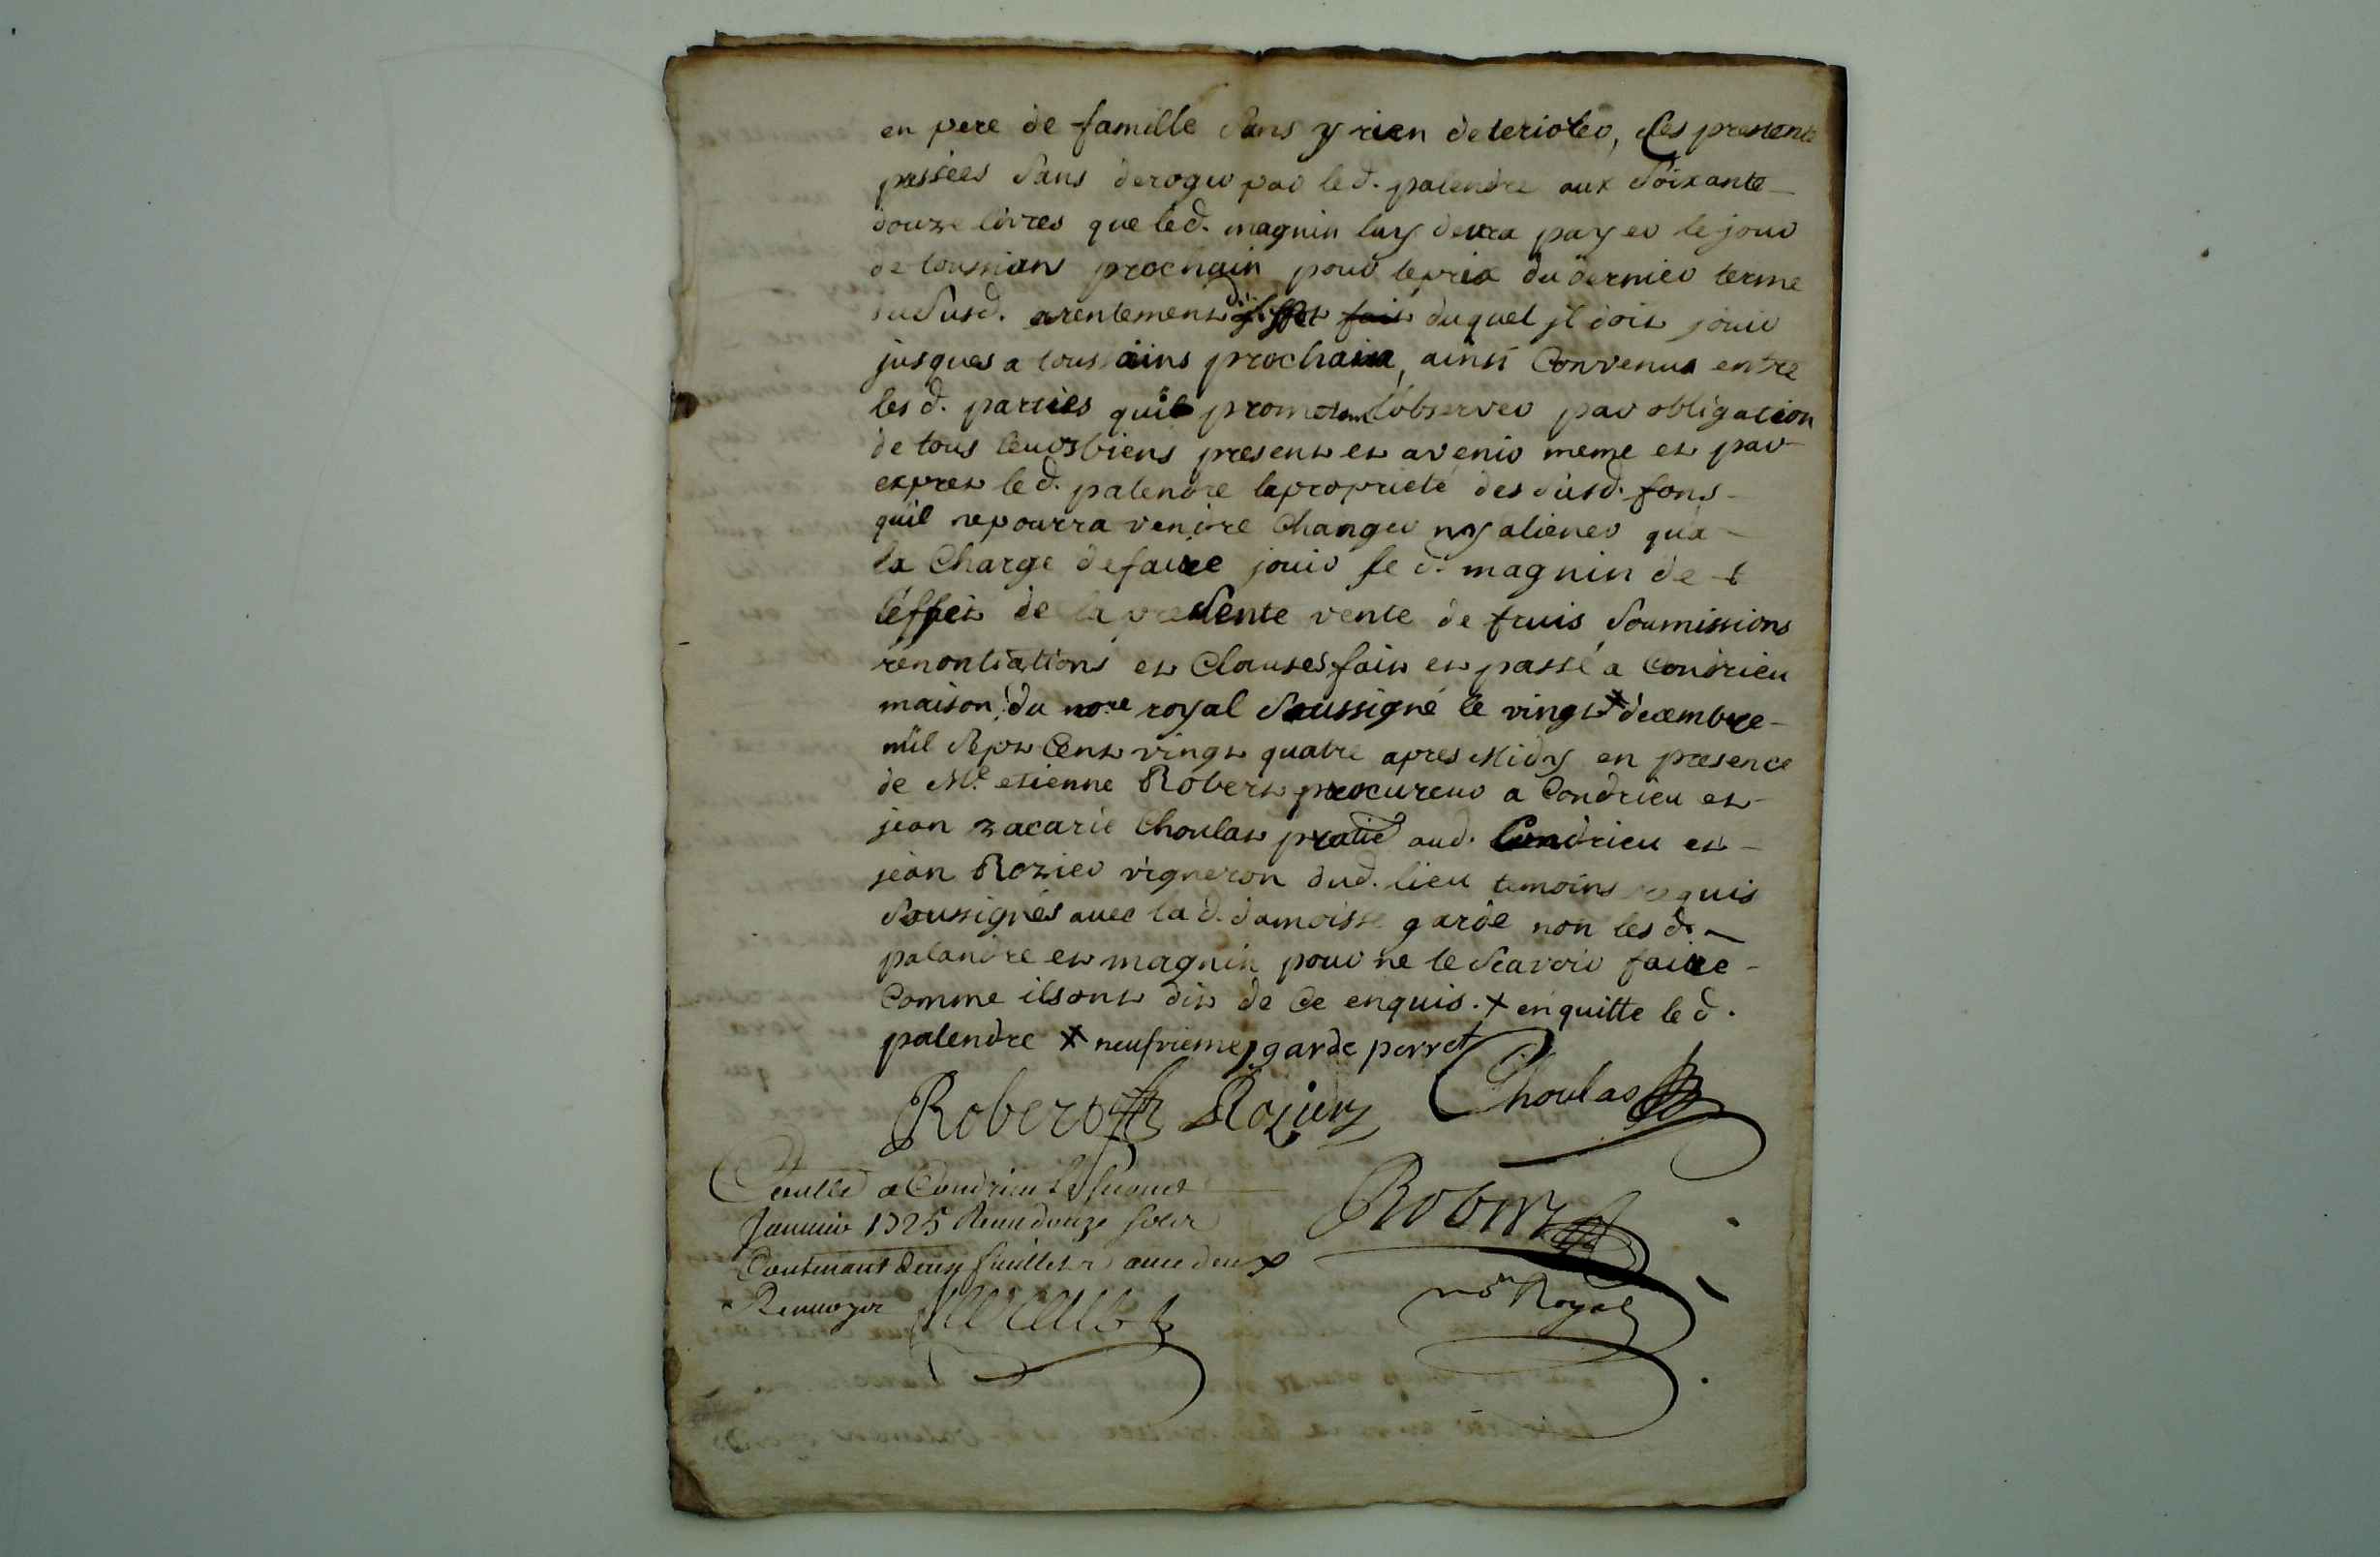 en pere de famille sans y rien deterioler, Les presente
passées sans deroger par led. palendre aux soixante
douze livres que led. magnin luy devra payer le jour
de toussians prochain pour le prix du dernier terme
du susd. arentement duquel jl doit jouir
jusques a toussains prochain, ainsi Convenus entre
les d. parties quil promettent observer par obligation
de tous leurs biens present et avenir meme et par
expres led. palendre la proprieté des susd. fons
quil ne pourra vendre Changer ny aliener qua
la Charge de faire jouir le d. magnin de
leffet de la presente vente de fruis soumissions
renontiations et Clauses fait et passé a Condrieu
maison du nore. royal soussigné le vingt x decembre
mil sept Cent vingt quatre apres Midy en presence
de Me. etienne Robert procureur a Condrieu et
jean zacarie Choulat pratic aud. Condrieu et
jean Rozier vigneron dud. lieu temoins requis
soussignés avec la d. damoisse garde non les d.
palandre et magnin pour ne le scavoir faire
Comme ils ont dit de Ce enquis. x en quitte le d.
palendre x neufvieme garde perret
Robert Rozier Choulas
Controllé a Condrieu le second
Janvier 1725 Receu douze solz
Contenant deux feuillets avec deux
Renvoyez
Robert
nore Royal